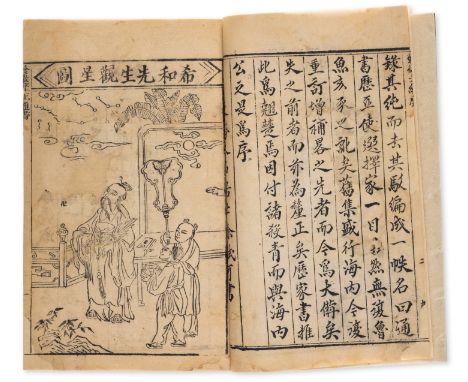 錄其純而去其駁編成一帙名曰通
書歷正使選擇家一目然無復魯
魚亥豕之訛矣舊集盛行海內今復
重訂增補畧之先者而今爲大備矣
失之前者而亦為釐正矣歷家書推
此爲翹楚焉因付諸殺青而與海內
公之是爲序
希和先生觀星圖